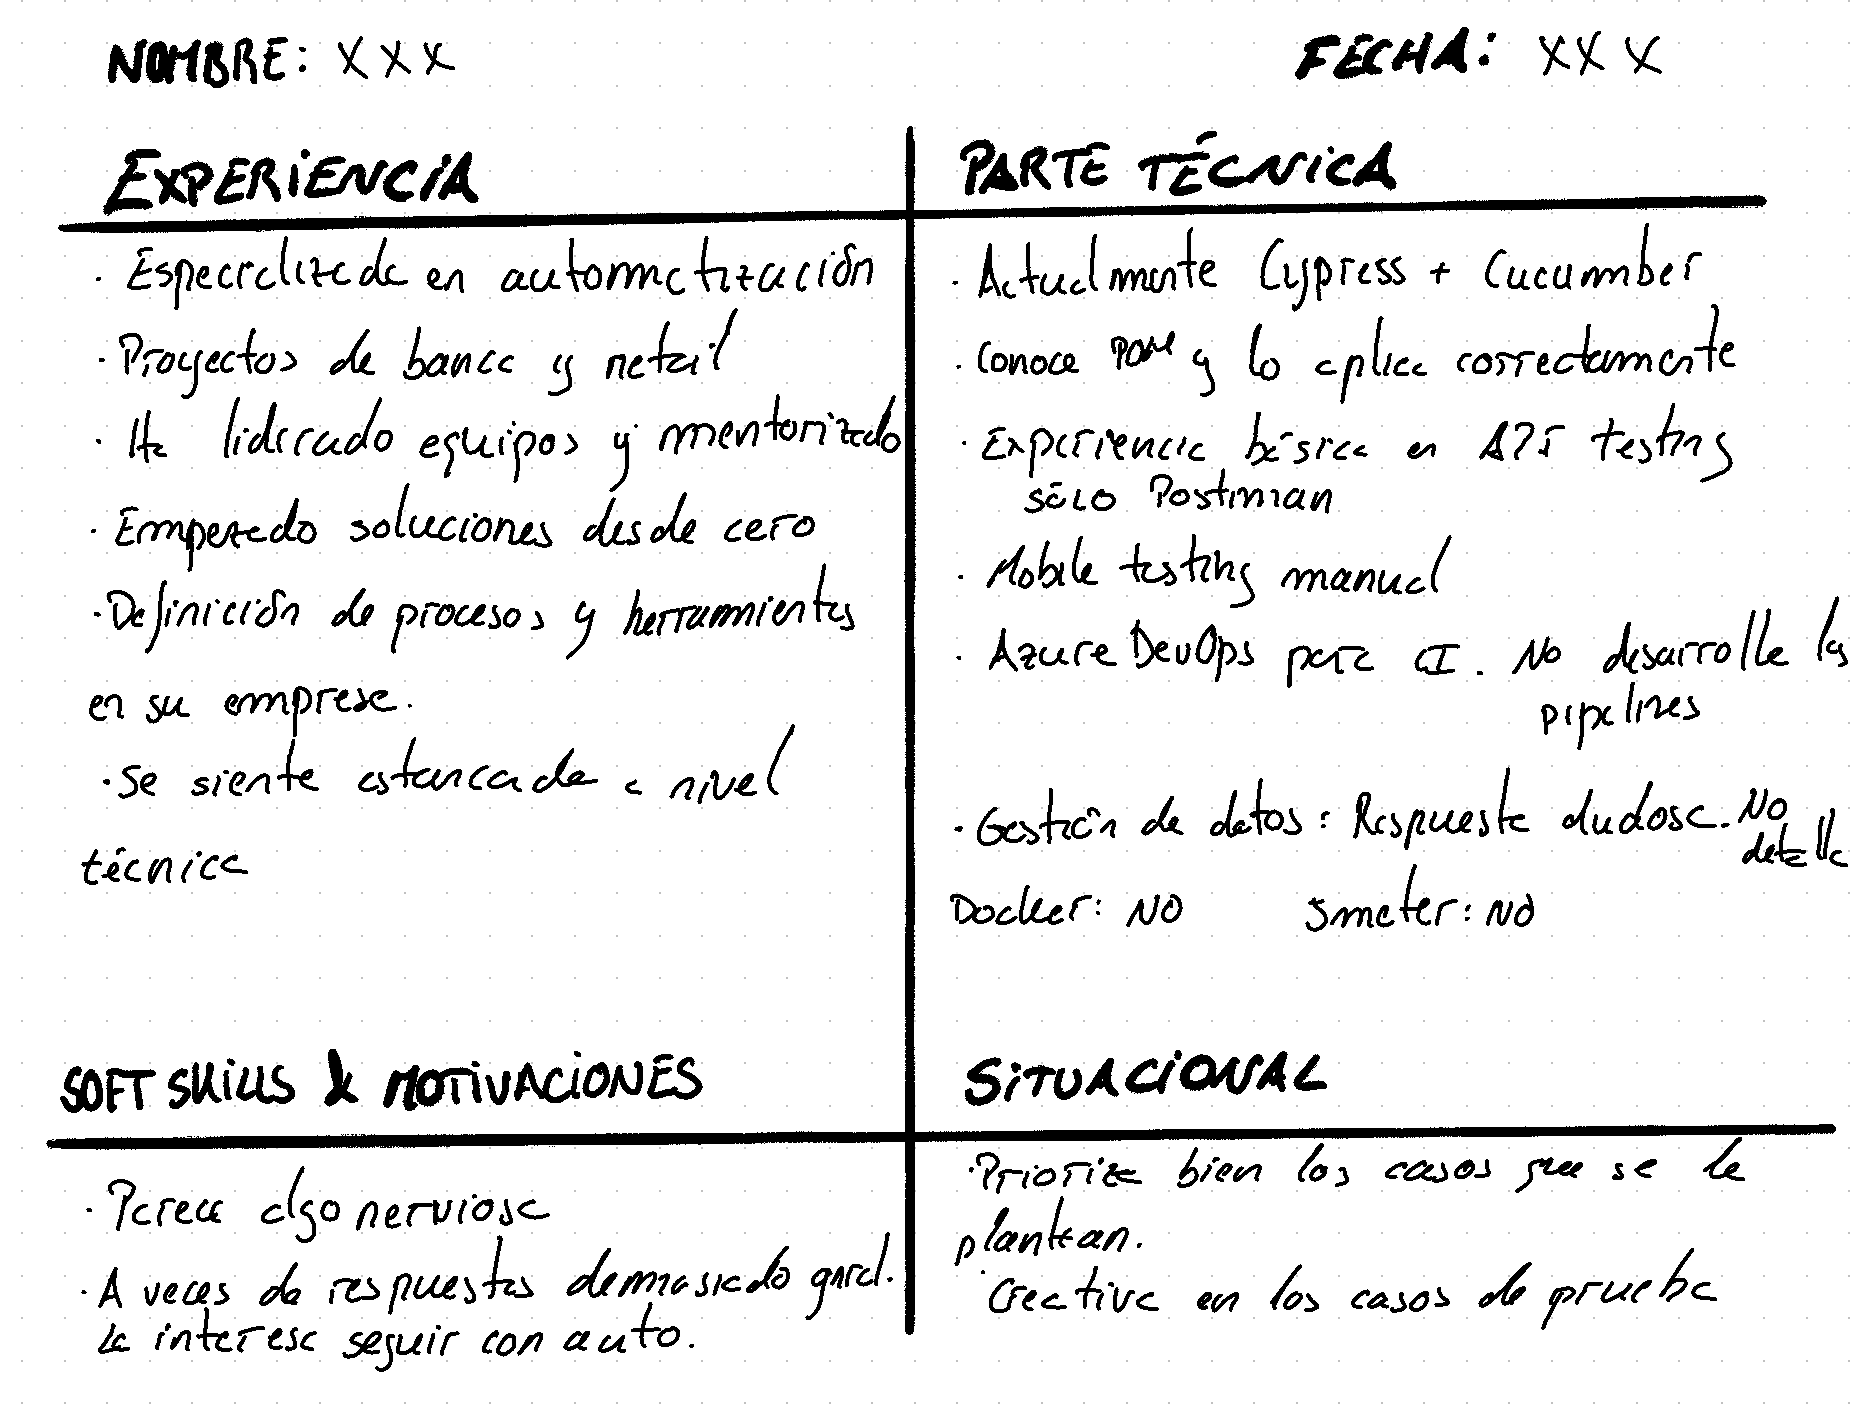 NOMBRE: XXX
FECHA: XXX
EXPERIENCIA
· Especializada en automatización
· Proyectos de banca y retail
· Ha liderado equipos y mentorizado
· Empezado soluciones desde cero
· Definición de procesos y herramientas
en su empresa.
· Se siente estancada a nivel
técnica
PARTE TÉCNICA
· Actualmente Cypress + Cucumber
· Conoce POM y lo aplica correctamente
· Experiencia básica en API testing
sólo Postman
· Mobile testing manual
· Azure DevOps para CI. No desarrolla las
pipelines
· Gestión de datos: Respuesta dudosa. No
detalla
Docker: NO Jmeter: NO
SOFT SKILLS & MOTIVACIONES
· Parece algo nerviosa
· A veces da respuestas demasiado gnral.
Le interesa seguir con auto.
SITUACIONAL
· Prioriza bien los casos que se le
plantean.
· Creativa en los casos de prueba